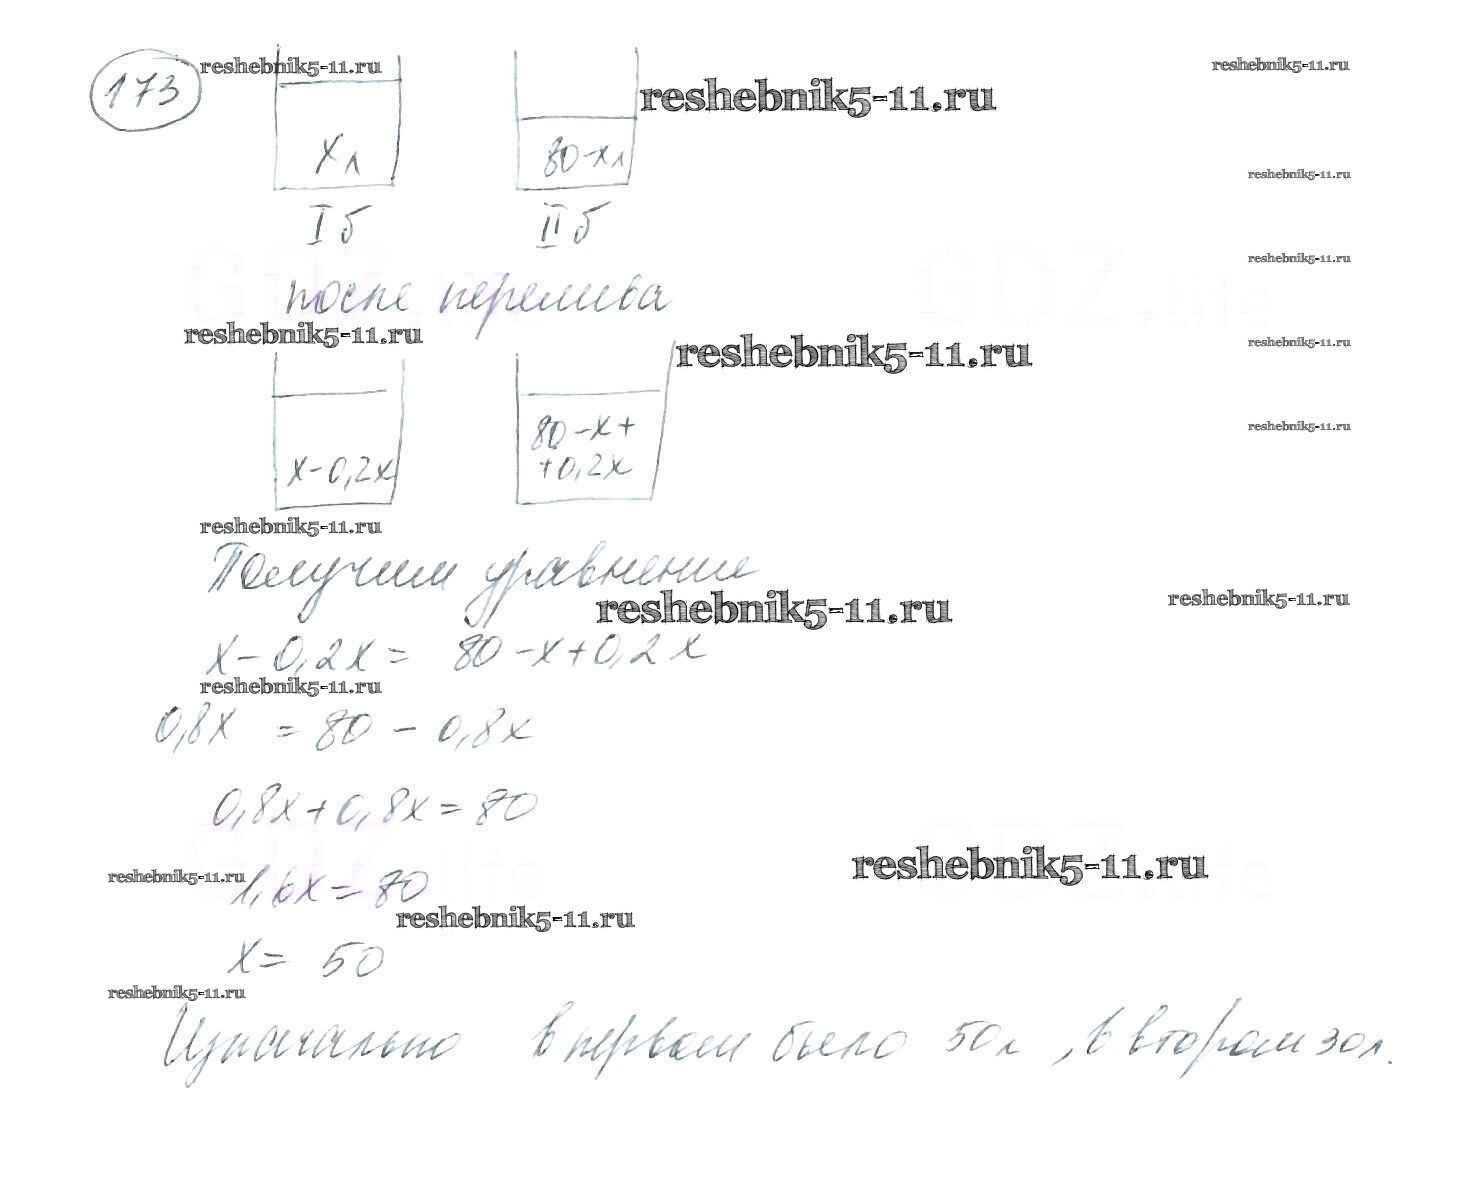 173 reshebnik5-11.ru reshebnik5-11.ru
reshebnik5-11.ru
x л 80-x л
reshebnik5-11.ru
I б II б
GDZ.life GDZ.life
reshebnik5-11.ru
после перелива
reshebnik5-11.ru reshebnik5-11.ru reshebnik5-11.ru
x-0,2x 80-x+
+0,2x
reshebnik5-11.ru
reshebnik5-11.ru
Получим уравнение
reshebnik5-11.ru reshebnik5-11.ru
x-0,2x= 80-x+0,2x
reshebnik5-11.ru
0,8x = 80 - 0,8x
0,8x+0,8x=80
GDZ.life GDZ.life
reshebnik5-11.ru 1,6x=80 reshebnik5-11.ru
reshebnik5-11.ru
x= 50
reshebnik5-11.ru
Изначально в первом было 50л, в втором 30л.